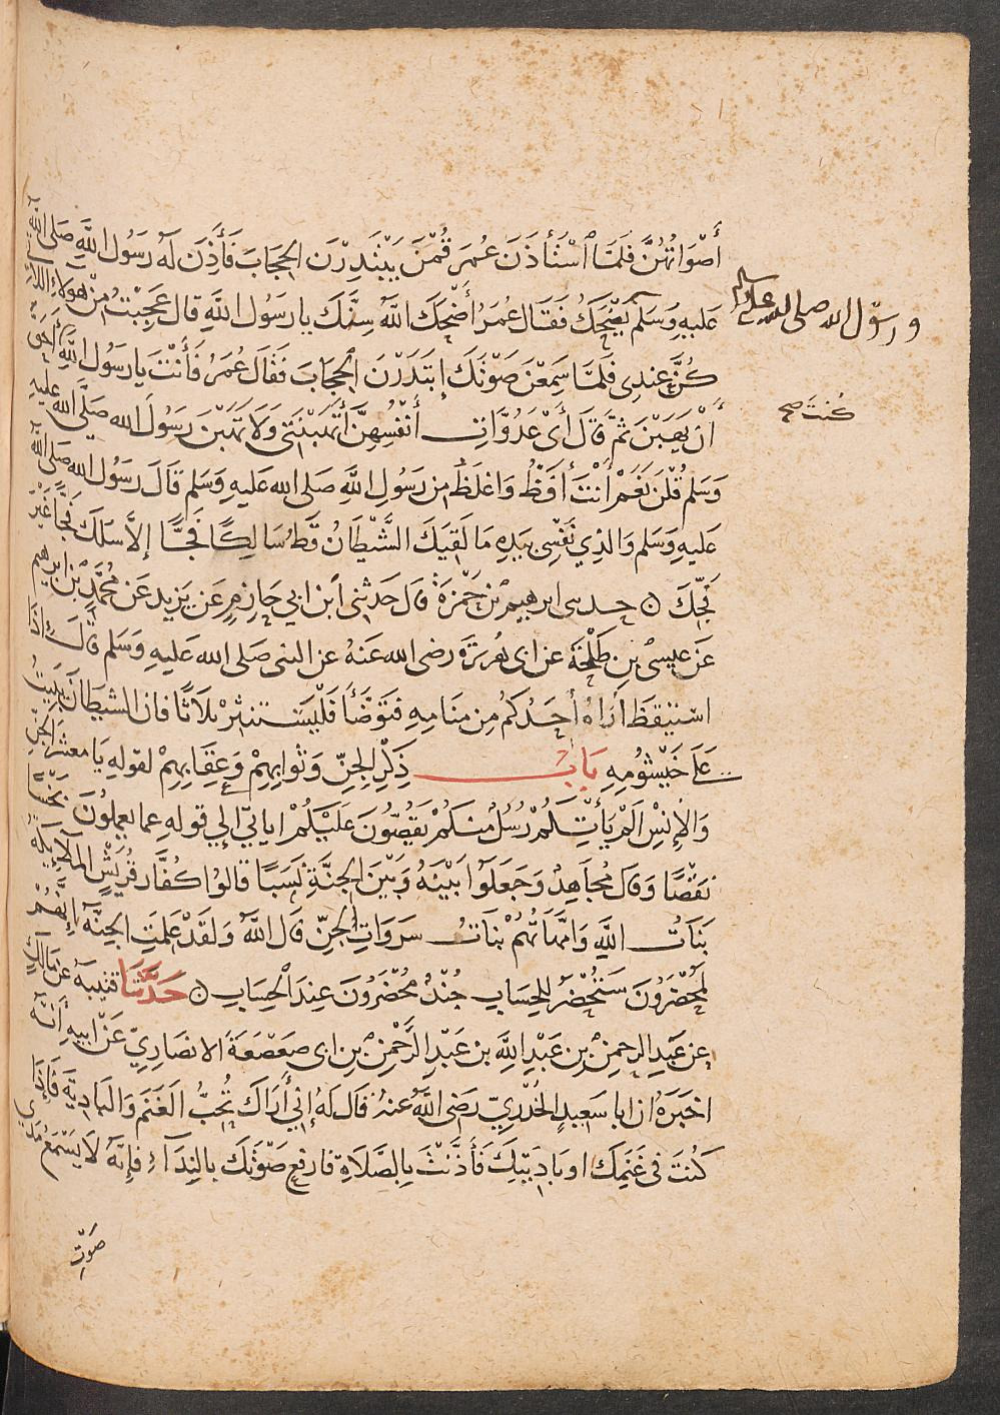 أَصْوَاتُهُنَّ فَلَمَّا ٱسْتَأْذَنَ عُمَرَ قُمْنَ يَبْتَدِرْنَ الحِجَابَ فَأَذِنَ لَهُ رَسُول اللَّهِ صَلى الله
عَليهِ وَسَلم يَضْحَكُ فَقَال عُمَرُ أَضْحَكَ اللَّهُ سِنَّكَ يا رَسُول اللَّهِ قال عَجِبْتُ مِنْ هولاءِ اللاتي
ورسوّل الله صلى الله عليه وسلم
كُنَّ عِندِى فَلمَّا سَمِعْنَ صَوْتَكَ إبتَدَرْنَ الحِجَابَ فَقَالَ عُمَرُ فَأَنْتَ يا رَسُول اللَّهِ أحَق
كُنتَ صح
أنْ يَهَبْنَ ثمَّ قَالَ أَىْ عَدُوَّاتِ أَنْفُسِهِنَّ أَتَهَبْنَنِى وَلَا تَهَبْنَ رَسُولَ الله صَلَّى الله عَليهِ
وَسَلم قُلْنَ نَعَمْ أَنْتَ أَفَظُّ وَاغلَظُ مِن رَسُولِ اللَّهِ صَلى الله عَليهِ وَسَلم قَالَ رَسُول الله صَلى الله
عَليهِ وَسَلم وَالذِي نَفْسِى بيَدِهِ مَا لَقِيَكَ الشَّيْطَانُ قَطُّ سَالِكًا فَجًّا إلاَّ سَلَكَ فَجًّا غَيْرَ
فَجِّكَ ۞ حدثنى ابرهيمُ بْن حَمْزَةَ قال حَدثَنِى ابْن ابي حَازِمٍ عَن يَزِيد عَن مُحمَّدِ بْن ابرهيم
عَن عيسىٰ بنِ طَلْحَةَ عن ابى هُريرَة رضى الله عَنهُ عن النبى صَلى الله عَليهِ وَسَلم قَالَ إذَا
اسْتَيْقَظَ أُرَاهُ أَحَدُكُم مِن مَنامِهِ فَتَوَضَّأَ فَلْيَسْتنثِرْ ثلَاثًا فان الشيطَانَ يَبِيتُ
عَلَى خَيْشُومِهِ بَابُ ذِكْرِ الجِنِّ وَثَوابِهِمْ وَعِقَابِهِمْ لقولِهِ يَا مَعشَر الجِنِّ
وَالإنسِ الَمْ يَأْتِكُمْ رُسُلٌ مِنكمْ يَقُصُّونَ عَلَيْكُمْ اياتى الي قولهِ عما يعملُونَ بَخْسًا
نَقْصًا وَقال مُجَاهِدٌ وَجَعَلوا بَيْنَهُ وَبَيْنَ الجِنَّةِ نَسَبًا قالوُا كُفَّار قُرَيْشٍ الملآئِكة
بَنَاتُ اللَّهِ وَامَّهَاتُهُمْ بنَاتُ سَرَوَاتِ الجِنِّ قَالَ اللَّهُ وَلَقَدْ عَلِمَتِ الجِنَّة إنَّهُمْ
لَمُحْضَرُونَ سَتُحْضَرُ لِلحِسَابِ جُنْدٌ مُحْضَرُونَ عِندَ الحِسَابِ ۞ حَدَّثنَا قتيبة عَن مَالك
عن عَبدِ الرحمنِ بْن عَبْدِ اللَّهِ بن عَبْدِ الرَّحْمنِ بْنِ ابى صَعْصَعَةَ الانصَارِيّ عَنْ ابيهِ أَنَّه
اخبَرَهُ ان ابا سَعيدٍ الخُدْرِيّ رَضى اللَّهُ عنهُ قال لَهُ إنِّي أَرَاكَ تُحِبُّ الغَنَم وَالبادِيَةَ فَإذَا
كُنتَ فى غَنَمِكَ او بَادِيَتِكَ فَأَذَّنْتَ بِالصَّلَاةِ فارفع صَوْتَكَ بالنِدَآءِ فإنَّهُ لَا يَسْمَعُ مَدَي
صَوْتِ